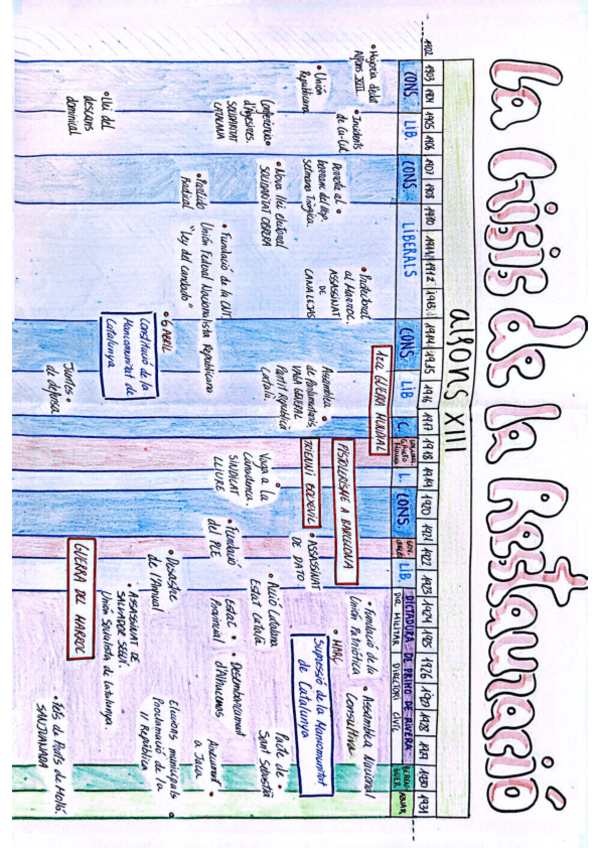 La Crisis de la Restauració
alfons XIII
1902 1903 1904 1905 1906 1907 1908 1910 1911 1912 1913 1914 1915 1916 1917 1918 1919 1920 1921 1922 1923 1924 1925 1926 1927 1928 1929 1930 1931
CONS.
LIB.
CONS.
LIBERALS
CONS.
LIB
C.
L.
CONS.
LIB.
DICTADURA DE PRIMO DE RIVERA
DIR. MILITAR
DIRECTORI CIVIL
BEREN
GUER
AZNAR
• Majoria d'edat
Alfons XIII
• Unión
Republicana
• Incidents
de Cu-Cut
Conferència •
d'Algesires.
SOLIDARITAT
CATALANA
• Llei del
descans
dominical
Derrota al
barranc del llop.
Setmana Tràgica.
• Nova llei electoral
SOLIDARITAT OBRERA
• Partido
Radical
• Protectorat
al Marroc.
ASSASSINAT
DE
CANALEJAS
• Fundació de la CNT
Unión Federal Nacionalista Republicana
"Ley del candado"
• 6 ABRIL
Constitució de la
Mancomunitat de
Catalunya
1era GUERRA MUNDIAL
Assemblea
de Parlamentaris
VAGA GENERAL
Partit Republicà
Català.
Juntes •
de defensa
PISTOLERISME A BARCELONA
TRIENNI BOLXEVIC
Vaga a la
Canadenca.
SINDICAT
LLIURE
• ASSASSINAT
DE DATO
• Fundació
del PCE
• Desastre
de l'Annual
GUERRA DEL MARROC
• Acció Catalana
Estat Català
• ASSASSINAT DE
SALVADOR SEGUÍ.
Unión Socialista de Catalunya.
• Fundació de la
Unión Patriótica
Estat •
Provincial
Supressió de la Mancomunitat
de Catalunya
• Desembarcament
d'Alhucemas
• Assemblea Nacional
Consultiva
Pacte de •
Sant Sebastià
Aixecament •
a Jaca
Eleccions municipals •
Proclamació de la
II República
• Fets de Prats de Molló.
SANJUANADA